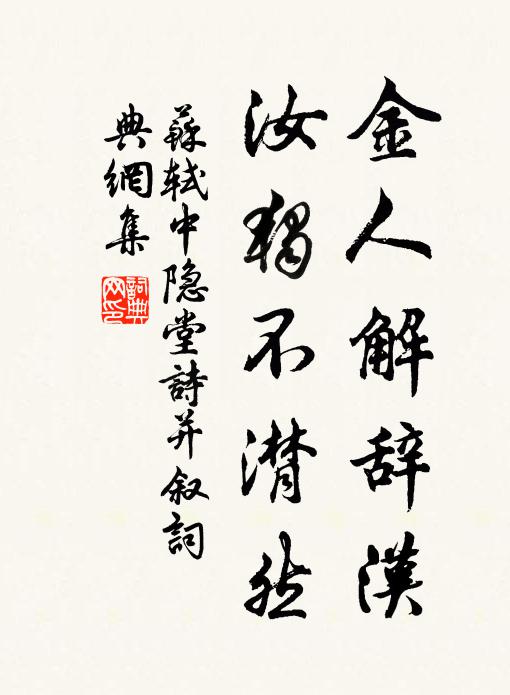 金人解辞漢
汝獨不潸然
蘇軾中隐堂詩并叙詞
典網集
詞典网印